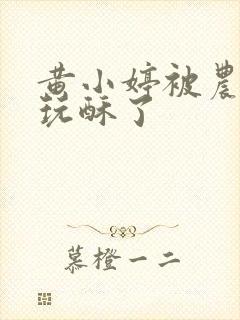 黄小婷被農
玩酥了
慕橙一二